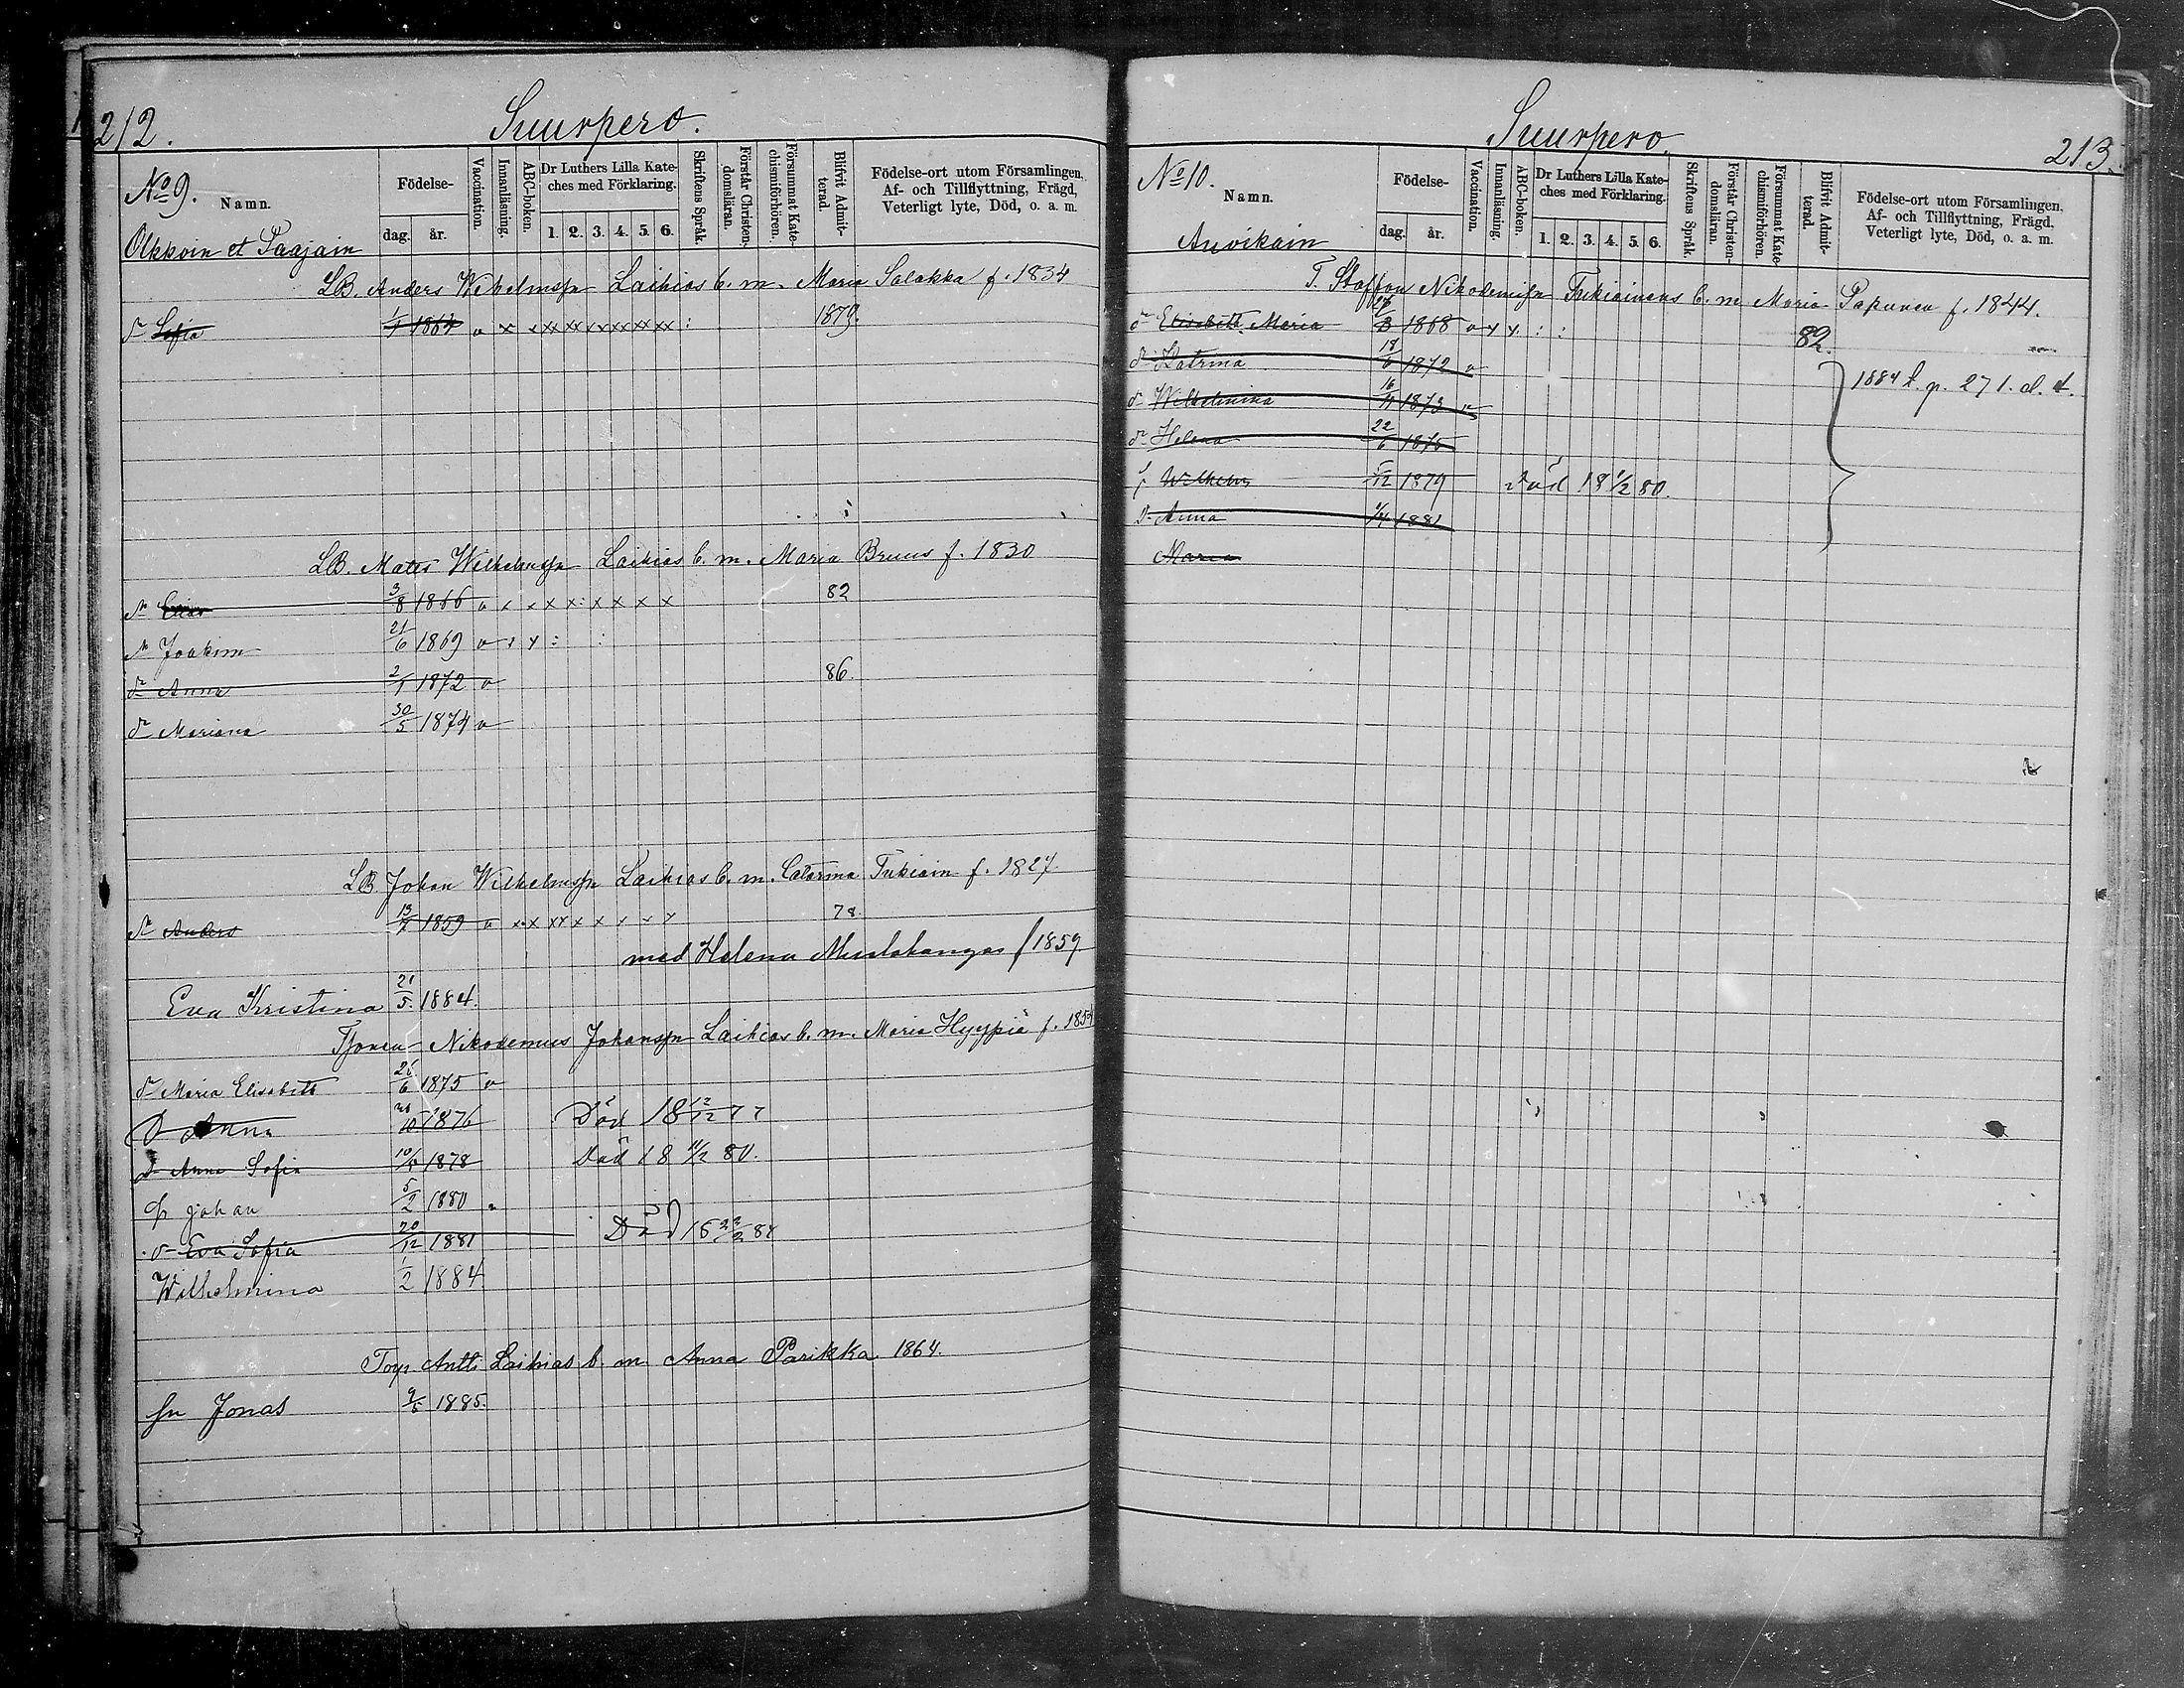 212.
Suurpero.
No 9.
Namn.
Födelse-
dag. år.
Vaccination.
Innanläsning.
ABC-boken.
Dr Luthers Lilla Kate-
ches med Förklaring.
1. 2. 3. 4. 5. 6.
Skriftens Språk.
Förstår Christen-
domsläran.
Försummat Kate-
chismiförhören.
Blifvit Admit-
terad.
Födelse-ort utom Församlingen,
Af- och Tillflyttning, Frägd,
Veterligt lyte, Död, o. a. m.
Olkkoin et Paajain
LB. Anders Wilhelmsn Laihias b. m. Maria Salakka f. 1834
dr Sofia 1/1 1864 1879.
LB. Mats Wilhelmsn Laihias b. m. Maria Bruus f. 1830
Sn Elias 3/8 1866 82
Sn Joakim 21/6 1869
dr Anna 2/1 1872 86.
dr Mariana 30/5 1874
LB Johan Wilhelmsn Laihias b. m. Catarina Tukiain f. 1827.
Sn Anders 1859 78.
med Helena f 1859
Eva Kristina 21/5. 1884.
Nikodemus Johansn Laihias b. m. Maria Hyypiä f. 1854
dr Maria Elisabeth 26/6 1875
D Anna 1876 Död 18 12/12 77
D Anna Sofia 1878 Död 18 11/2 80.
Johan 5/2 1880
D Eva Sofia 20/12 1881 Död 18 22/2 84
Wilhelmina 1/2 1884
Antti Laihias b. m. Anna Parikka 1864.
Sn Jonas 1885.
Suurpero.
213.
No 10.
Namn.
Födelse-
dag. år.
Vaccination.
Innanläsning.
ABC-boken.
Dr Luthers Lilla Kate-
ches med Förklaring.
1. 2. 3. 4. 5. 6.
Skriftens Språk.
Förstår Christen-
domsläran.
Försummat Kate-
chismiförhören.
Blifvit Admit-
terad.
Födelse-ort utom Församlingen,
Af- och Tillflyttning, Frägd,
Veterligt lyte, Död, o. a. m.
Auvikain
T. Staffan Nikodemisn Tukiainens b. m. Maria Papunen f. 1844.
dr Elisabeth Maria 1868 82.
dr Katrina 18/6 1872
dr Wilhelmina 1873 1884 p. 271.
dr Helena 22/6 1875
Wilhelm 5/12 1879 Död 18 1/2 80.
D Anna 1881
Maria